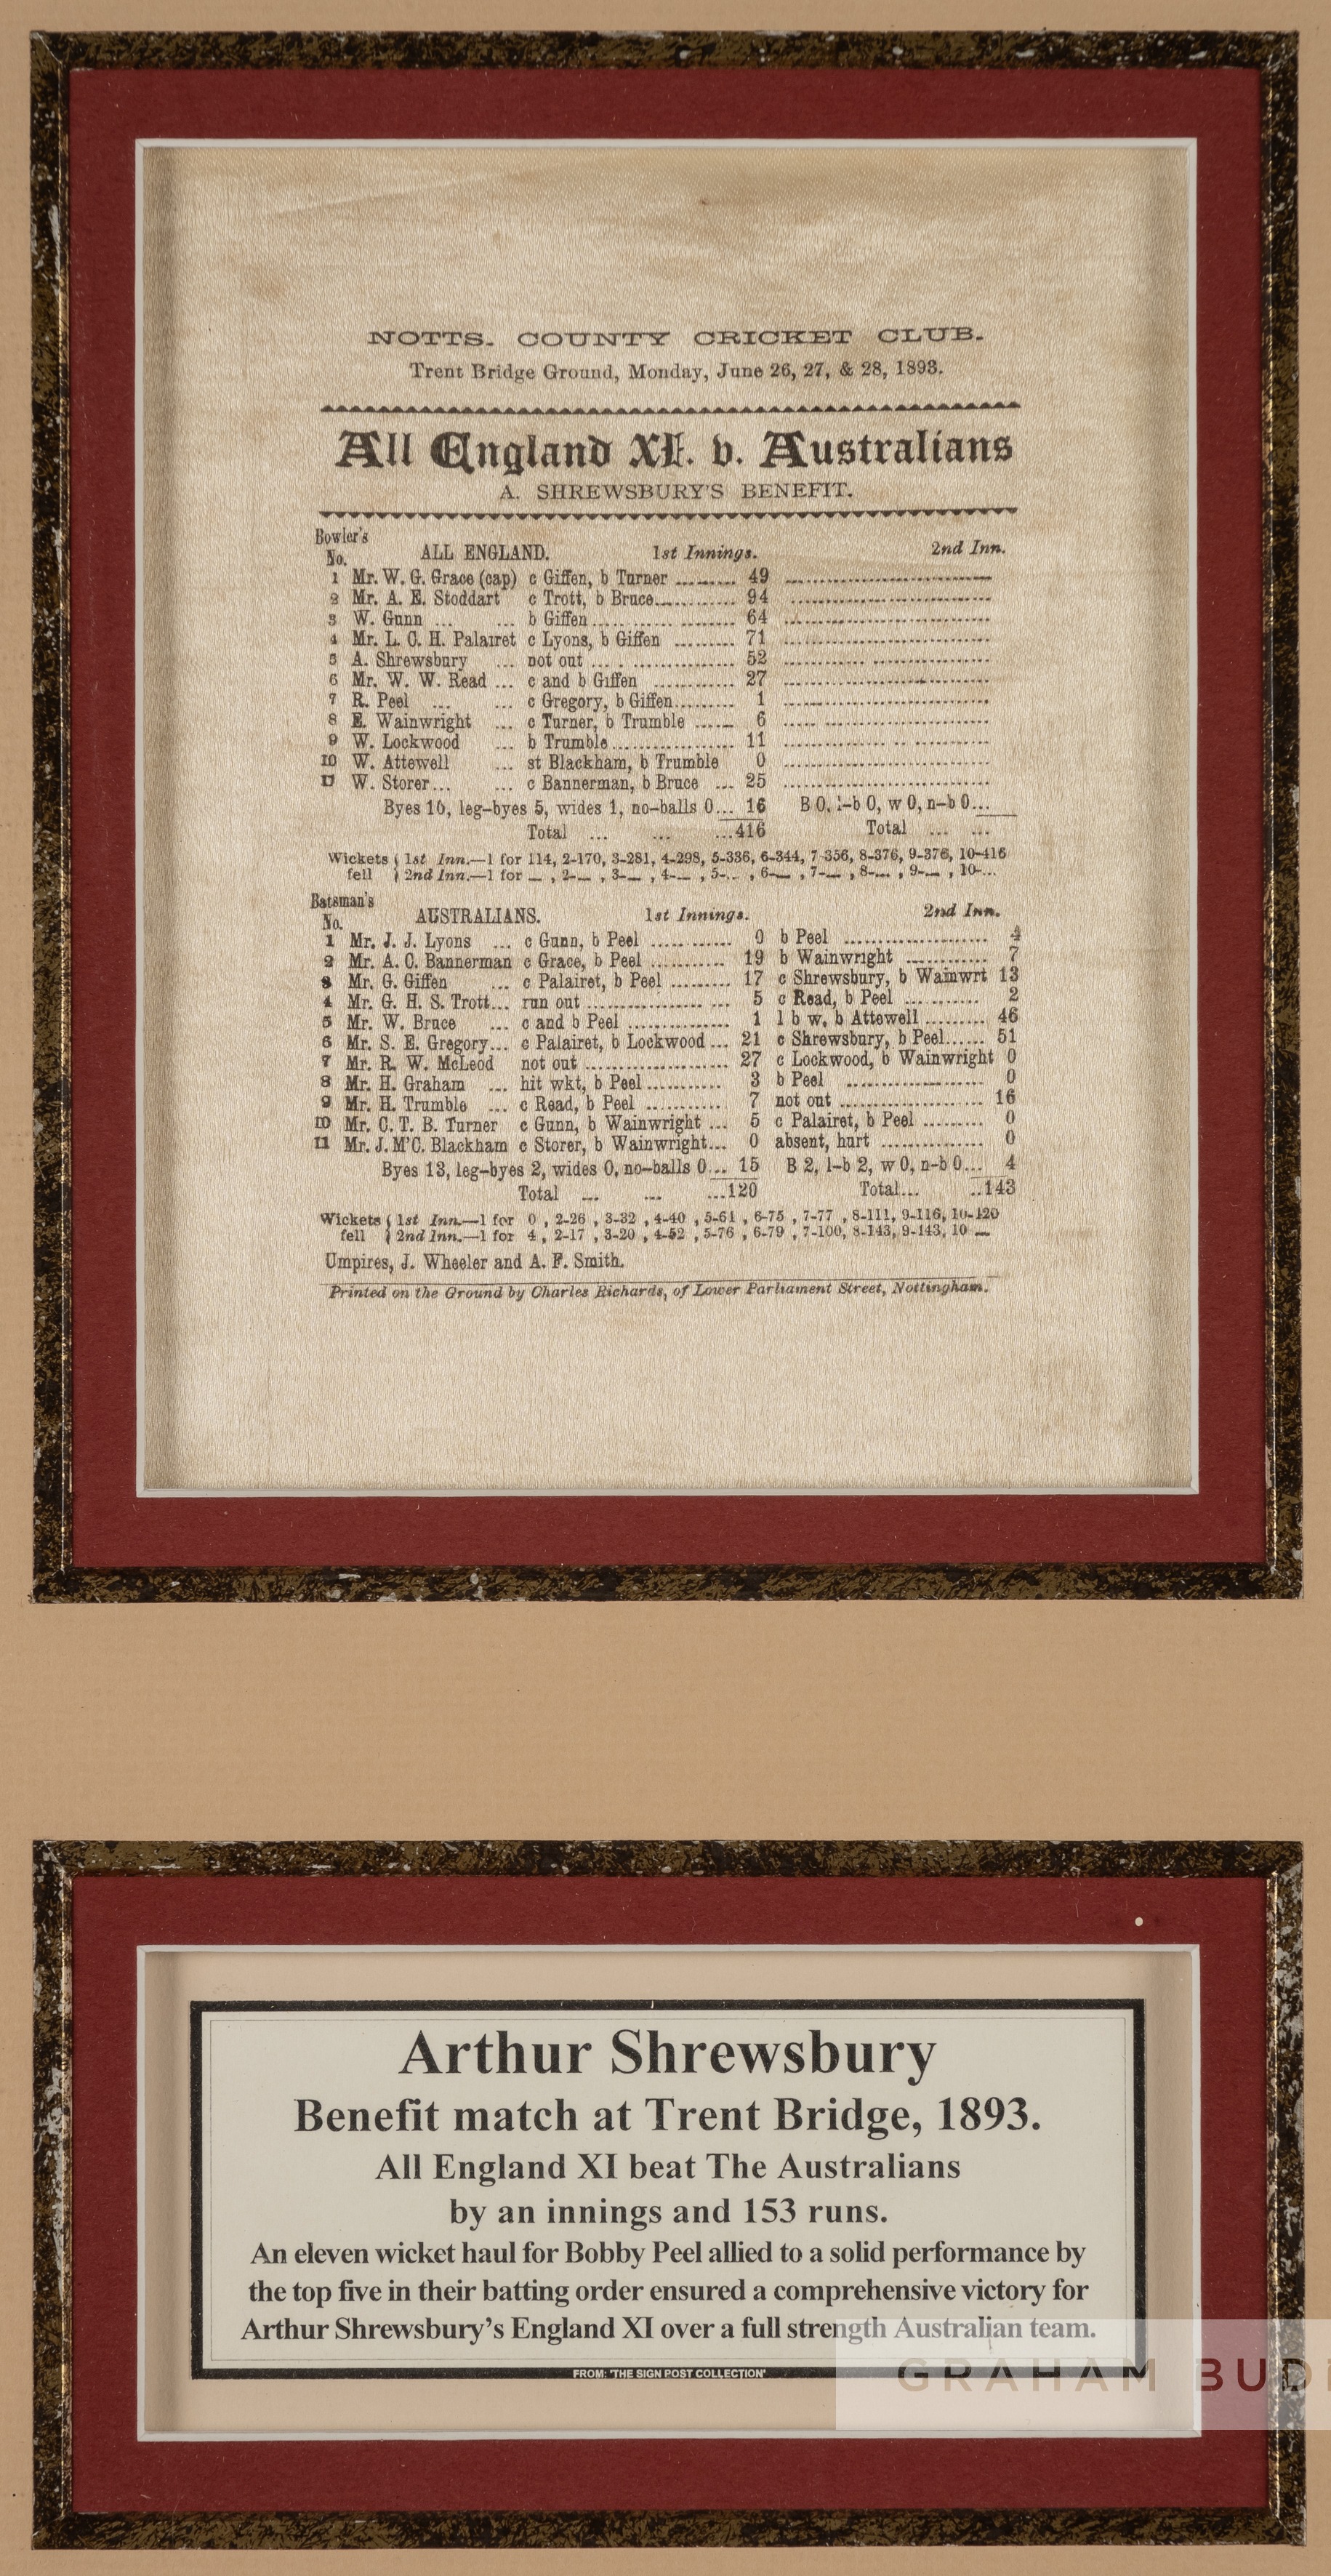 NOTTS. COUNTY CRICKET CLUB.
Trent Bridge Ground, Monday, June 26, 27, & 28, 1893.
All England XI. v. Australians
A. SHREWSBURY'S BENEFIT.
Bowler's No. ALL ENGLAND. 1st Innings. 2nd Inn.
1 Mr. W. G. Grace (cap) c Giffen, b Turner ......... 49 ..............................
2 Mr. A. E. Stoddart c Trott, b Bruce............ 94 ..............................
3 W. Gunn ... ... b Giffen..................... 64 ..............................
4 Mr. L. C. H. Palairet c Lyons, b Giffen ......... 71 ..............................
5 A. Shrewsbury ... not out ..................... 52 ..............................
6 Mr. W. W. Read ... c and b Giffen ............ 27 ..............................
7 R. Peel ... ... c Gregory, b Giffen......... 1 ..............................
8 E. Wainwright ... c Turner, b Trumble ...... 6 ..............................
9 W. Lockwood ... b Trumble.................. 11 ..............................
10 W. Attewell ... st Blackham, b Trumble 0 ..............................
11 W. Storer... ... c Bannerman, b Bruce ... 25 ..............................
Byes 10, leg-byes 5, wides 1, no-balls 0... 16 B 0, l-b 0, w 0, n-b 0...
Total ... ... ...416 Total ... ...
Wickets fell { 1st Inn.—1 for 114, 2-170, 3-281, 4-298, 5-336, 6-344, 7-356, 8-376, 9-376, 10-416
{ 2nd Inn.—1 for — , 2-— , 3-— , 4-— , 5-— , 6-— , 7-— , 8-— , 9-— , 10-...
Batsman's No. AUSTRALIANS. 1st Innings. 2nd Inn.
1 Mr. J. J. Lyons ... c Gunn, b Peel ............ 0 b Peel ..................... 4
2 Mr. A. C. Bannerman c Grace, b Peel ........... 19 b Wainwright ............ 7
3 Mr. G. Giffen ... c Palairet, b Peel ......... 17 c Shrewsbury, b Wainwrt 13
4 Mr. G. H. S. Trott... run out ..................... 5 c Read, b Peel ........... 2
5 Mr. W. Bruce ... c and b Peel ............... 1 l b w, b Attewell ......... 46
6 Mr. S. E. Gregory... c Palairet, b Lockwood ... 21 c Shrewsbury, b Peel...... 51
7 Mr. R. W. McLeod not out ..................... 27 c Lockwood, b Wainwright 0
8 Mr. H. Graham ... hit wkt, b Peel ........... 3 b Peel ..................... 0
9 Mr. H. Trumble ... c Read, b Peel ........... 7 not out ..................... 16
10 Mr. C. T. B. Turner c Gunn, b Wainwright ... 5 c Palairet, b Peel ......... 0
11 Mr. J. M'C. Blackham c Storer, b Wainwright... 0 absent, hurt ............... 0
Byes 13, leg-byes 2, wides 0, no-balls 0... 15 B 2, l-b 2, w 0, n-b 0... 4
Total ... ... ...120 Total... ..143
Wickets fell { 1st Inn.—1 for 0 , 2-26 , 3-32 , 4-40 , 5-61 , 6-75 , 7-77 , 8-111, 9-116, 10-120
{ 2nd Inn.—1 for 4 , 2-17 , 3-20 , 4-52 , 5-76 , 6-79 , 7-100, 8-143, 9-143, 10 —
Umpires, J. Wheeler and A. F. Smith.
Printed on the Ground by Charles Richards, of Lower Parliament Street, Nottingham.
Arthur Shrewsbury
Benefit match at Trent Bridge, 1893.
All England XI beat The Australians
by an innings and 153 runs.
An eleven wicket haul for Bobby Peel allied to a solid performance by
the top five in their batting order ensured a comprehensive victory for
Arthur Shrewsbury's England XI over a full strength Australian team.
FROM: 'THE SIGN POST COLLECTION'
GRAHAM BUD